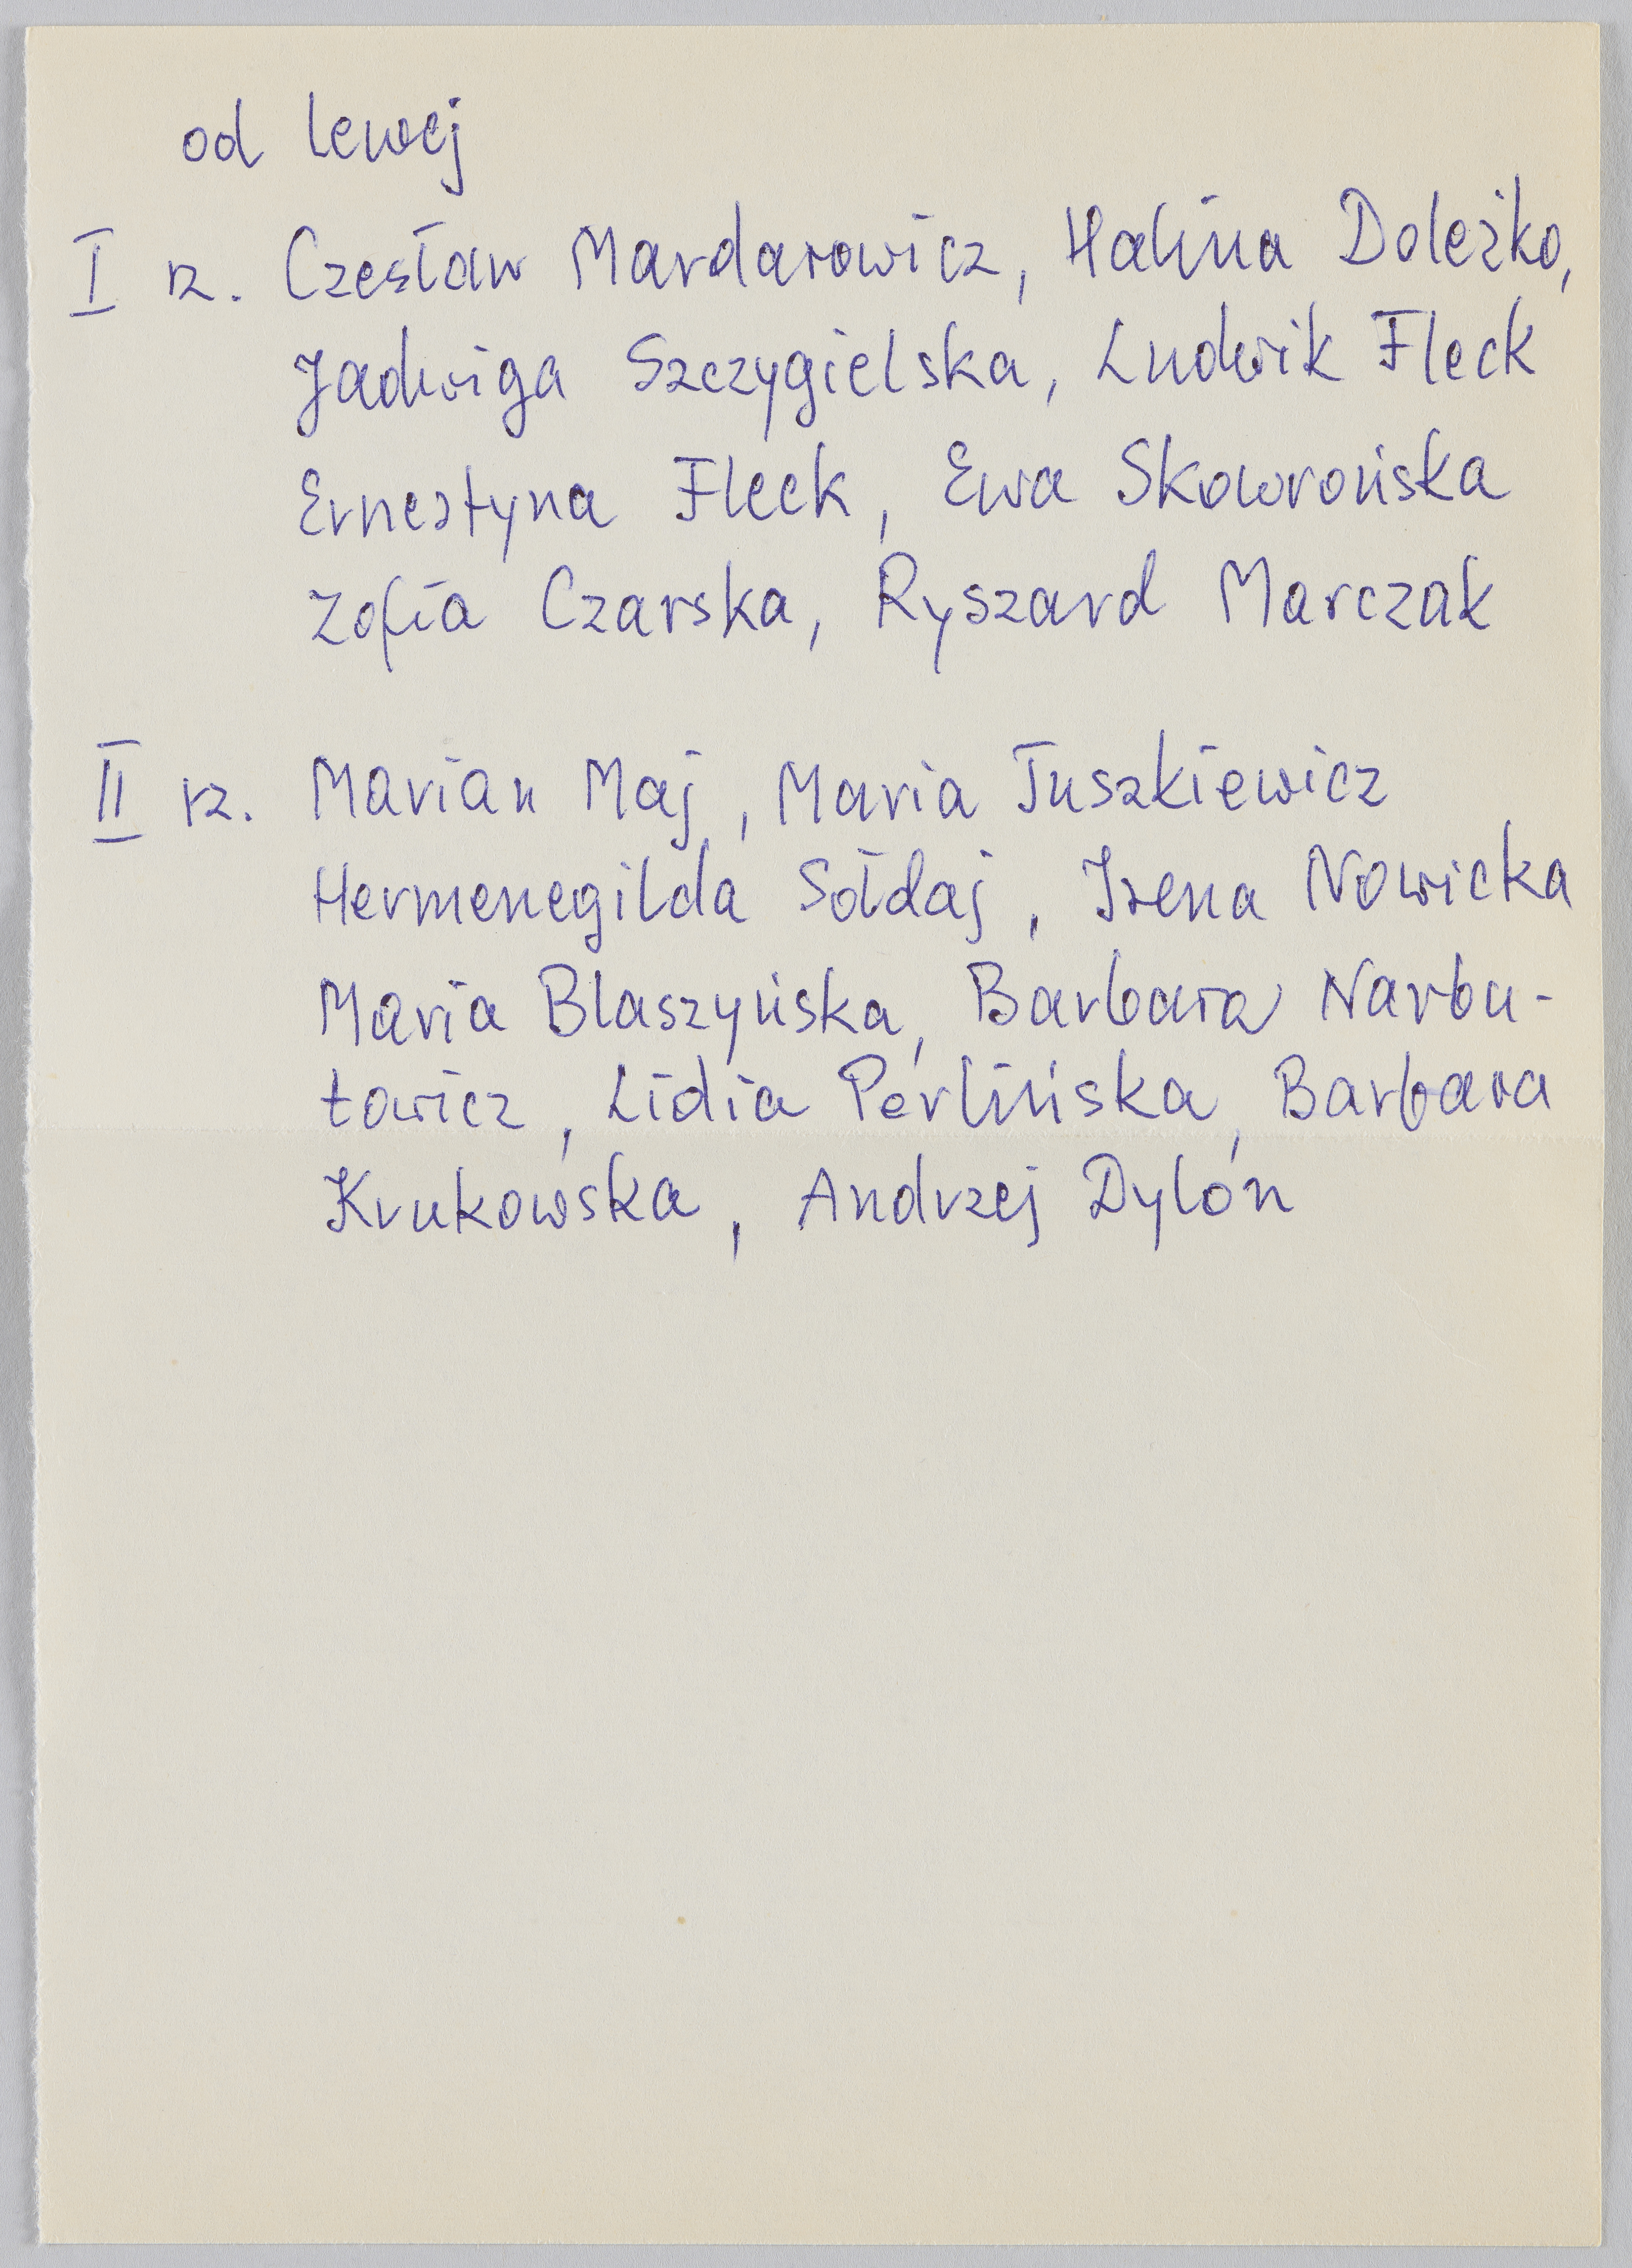 od lewej
I rz. Czesław Mardarowicz, Halina Doleżko,
Jadwiga Szczygielska, Ludwik Fleck
Ernestyna Fleck, Ewa Skowrońska
Zofia Czarska, Ryszard Marczak
II rz. Marian Maj, Maria Tuszkiewicz
Hermenegilda Sołdaj, Irena Nowicka
Maria Blaszyńska, Barbara Narbu-
towicz, Lidia Perlińska, Barbara
Krukowska, Andrzej Dylón